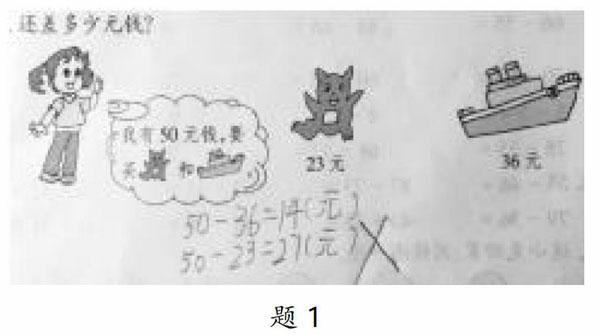 还差多少元钱?
我有50元钱,要
买 和
23元
36元
50-36=14(元)
50-23=27(元)
题 1